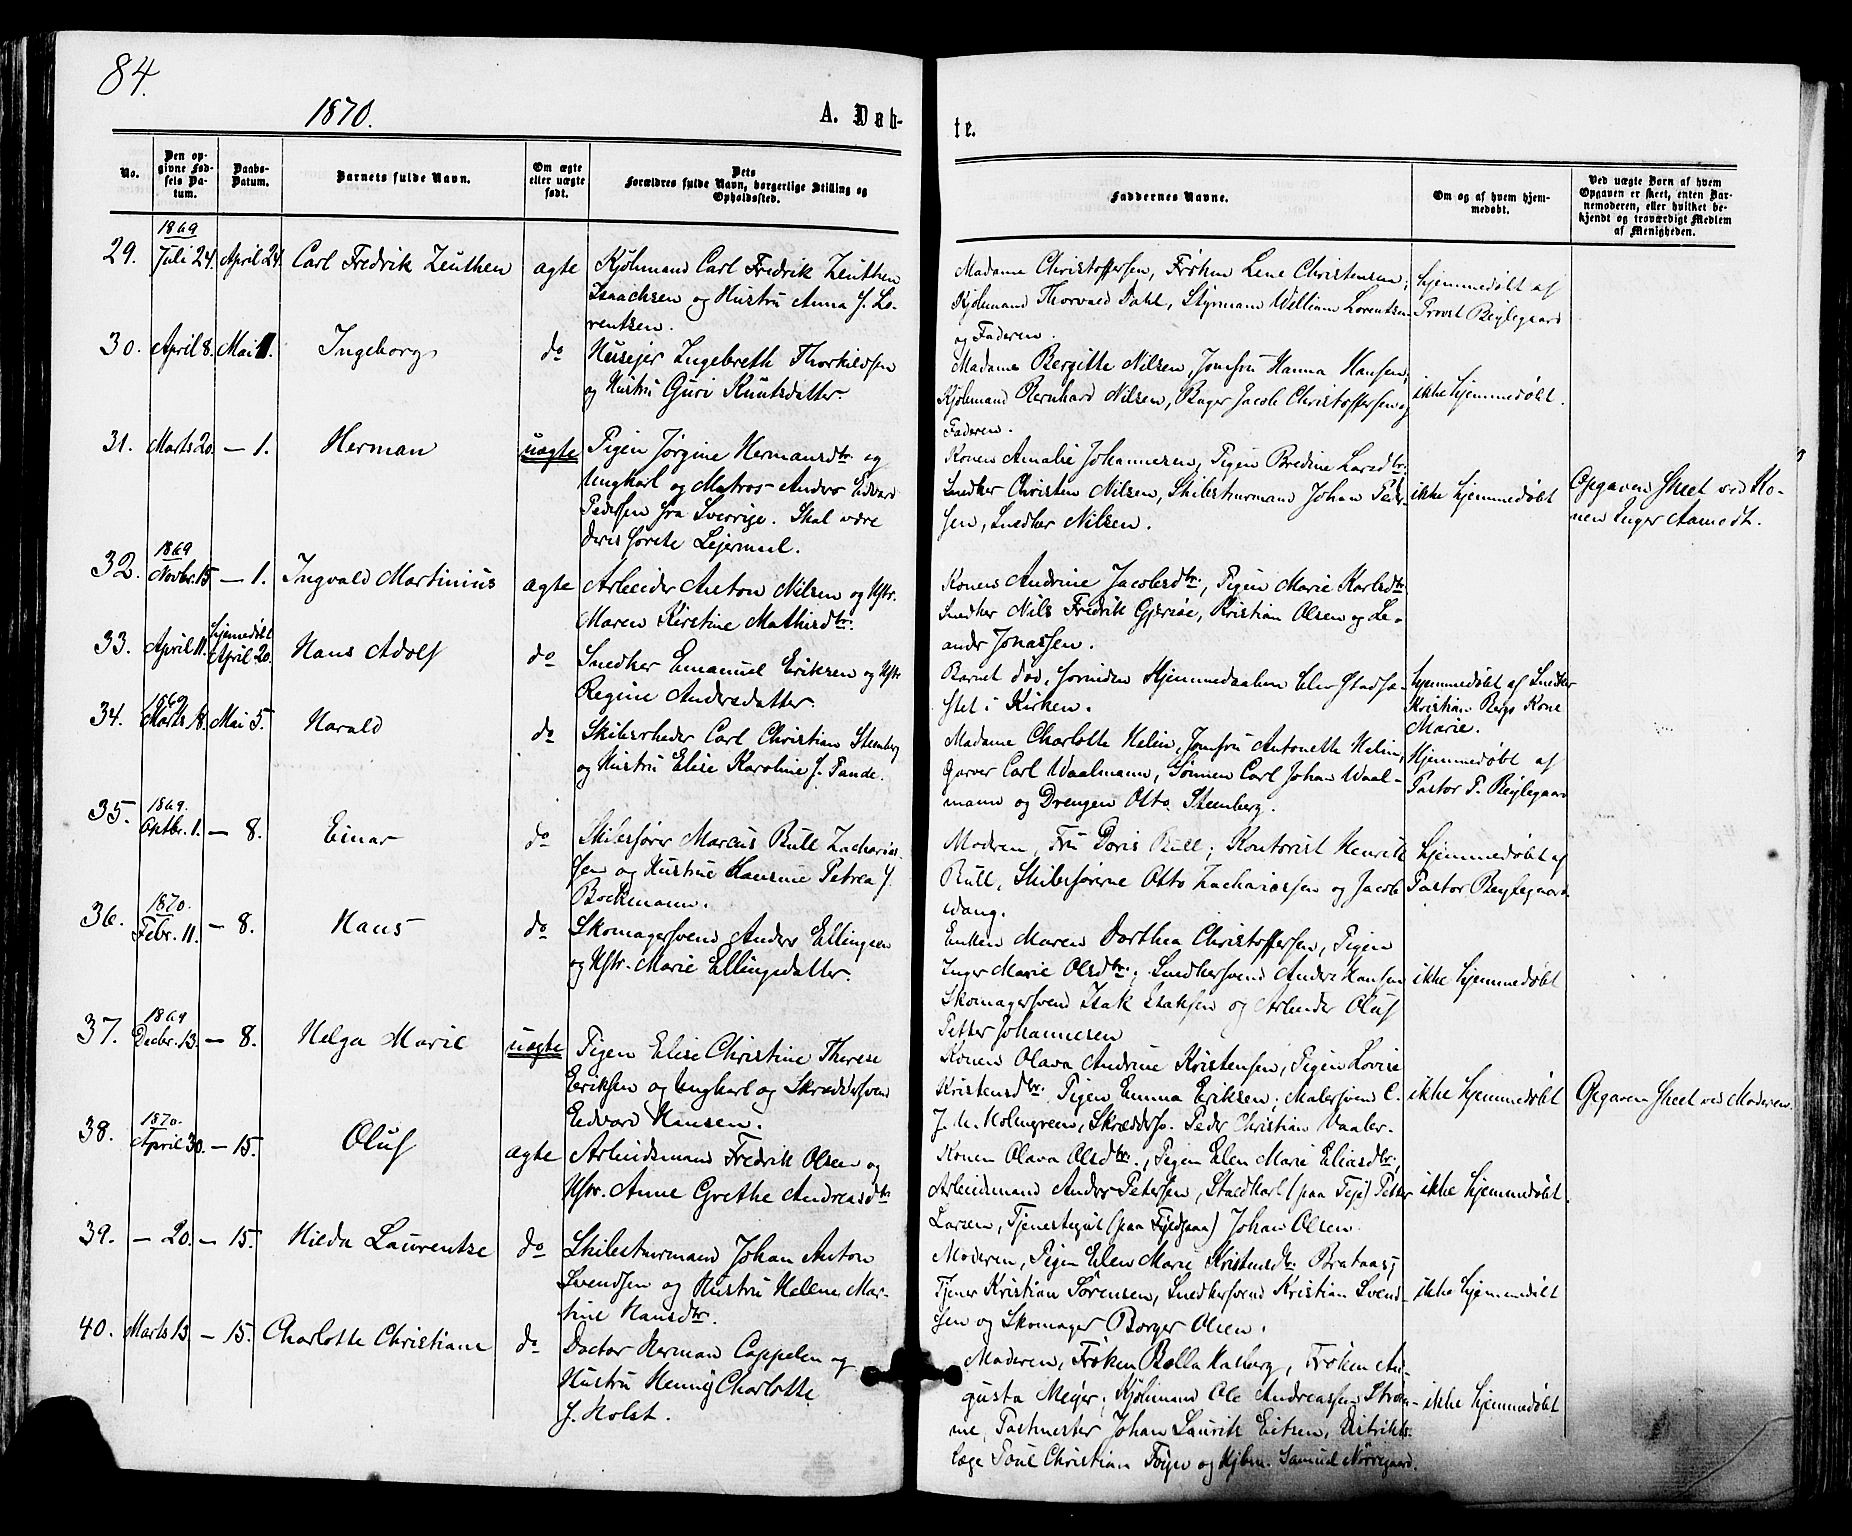 84.
1870.
A. Døb-
te.
No.
Den op-
givne Fød-
sels Da-
tum.
Daabs-
Datum.
Barnets fulde Navn.
Om ægte
eller uægte
født.
Dets
Forældres fulde Navn, borgerlige Stilling og
Opholdssted.
Faddernes Navne.
Om og af hvem hjem-
medøbt.
Ved uægte Børn af hvem
Opgaven er skeet, enten Bar-
nemoderen, eller hvilket be-
kjendt og troværdigt Medlem
af Menigheden.
1869
29. Juli 24. April 24. Carl Fredrik Zeuthen ægte Kjøbmand Carl Fredrik Zeuthen
Isaachsen og Hustru Anna f. Lo-
rentsen.
Madame Christoffersen, Frøken Lene Christensen,
Kjøbmand Thorvald Dahl, Styrmann William Lorentsen
og Faderen.
hjemmedøbt af
Provst Bejlegaard
30. April 8. Mai 1. Ingeborg do Huusejer Ingebreth Thorkildsen
og Hustru Guri Knutsdatter.
Madame Bergitte Nilsen, Jomfru Hanna Hansen,
Kjøbmand Bernhard Nilsen, Bager Jacob Christoffersen og
Faderen.
ikke hjemmedøbt.
31. Marts 20. — 1. Herman uægte Pigen Jørgine Hermansdtr. og
Ungkarl og Matros Anders Edvard
Pedersen fra Sverrige. Skal være
deres første Lejermaal.
Konen Amalie Johannesen, Pigen Bredine Larsdtr.
Snedker Christen Nilsen, Skibsturmand Johan Peder-
sen, Snedker Nilsen.
ikke hjemmedøbt
Opgaven skeet ved Ko-
nen Inger Aamodt.
1869
32. Novbr. 15 — 1. Ingvald Martinius ægte Arbeider Anton Nilsen og Hstr.
Maren Kirstine Mathisdtr.
Konen Andrine Jacobsdtr., Pigen Marie Karlsdtr.
Snedker Nils Fredrik Gjersøe, Kristian Olsen og Le-
ander Jonassen.
33. April 11. hjemmedøbt
April 20. Hans Adolf do Snedker Emanuel Eriksen og Hstr
Regine Andersdatter.
Barnet død, forinden Hjemmedaaben blev stadfæ-
stet i Kirken.
hjemmedøbt af Snedker
Kristian Bergs Kone
Marie.
1869
34. Marts 18. Mai 5. Harald do Skibsrheder Carl Christian Steenberg
og Hustru Elise Karoline f. Pande.
Madame Charlotte Helin, Jomfru Antonette Helin,
Garver Carl Waalmann, Sønnen Carl Johan Waal-
mann og Drengen Otto Steenberg.
Hjemmedøbt af
Pastor P. Bejlegaard
1869.
35. Optbr. 1. — 8. Einar do Skibsfører Marcus Bull Zacharias-
sen og Hustrue Hansine Petrea f.
Bockmann.
Moderen, Fru Doris Bull; Kontorist Henrik
Bull, Skibsførerne Otto Zachariassen og Jacob
Wang.
hjemmedøbt af
Pastor Bejlegaard
1870.
36. Febr. 11. — 8. Hans do Skomagersvend Anders Ellingsen
og Hstr. Marie Ellingsdatter.
Enken Maren Dorthea Christoffersen, Pigen
Inger Marie Olsdtr.; Snedkersvend Anders Hansen
Skomagersvend Isak Isaksen og Arbeider Oluf
Petter Johannesen
ikke hjemmedøbt
1869
37. Decbr. 13. — 8. Helga Marie uægte Pigen Elise Christine Therese
Eriksen og Ungkarl og Skræddersvend
Edvard Hansen.
Konen Olava Andrine Kristensen, Pigen Lovise
Kristensdtr. Pigen Emma Eriksen; Malersvend C.
J. U. Holmgreen, Skrædders. Peder Christian Vaaler.
ikke hjemmedøbt
Opgaven skeet ved Moderen.
1870.
38. April 30. — 15. Oluf ægte Arbeidsmand Fredrik Olsen og
Hstr. Anne Grethe Andreasdtr
Konen Olava Olsdtr., Pigen Elen Marie Eliasdtr.,
Arbeidsmand Anders Petersen, Staldkarl (paa Feje) Petter
Larsen, Tjenestegut (paa) Johan Olsen
ikke hjemmedøbt.
39. — 20. — 15. Hilda Laurentze do Skibsturmand Johan Anton
Svendsen og Hustru Helene Mar-
tine Hansdtr.
Moderen, Pigen Elen Marie Kristensdtr. Brataas,
Tjener Kristian Sørensen, Snedkersvend Kristian Svend-
sen og Skomager Borger Olsen.
ikke hjemmedøbt
40. Marts 13. — 15. Charlotte Christiane do Doctor Herman Cappelen og
Hustru Henny Charlotte
f. Holst.
Moderen, Frøken Bolla Aasberg, Frøken Au-
gusta Mejer; Kjøbmand Ole Andreassen Strøm-
me, Postmester Johan Lauritz Eitsen, Distrikts-
læge Poul Christian Foyn og Kjbm. Samuel Nørregaard.
ikke hjemmedøbt